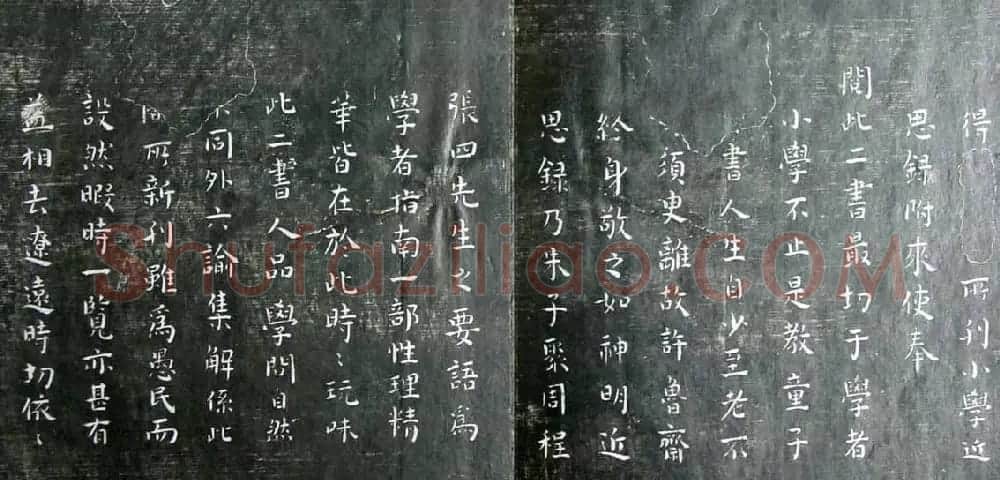 得 所刊小學近
思録附來使奉
閲此二書最切于學者
小學不止是教童子
書人生自少至老不
須臾離故許魯齋
終身敬之如神明近
思録乃朱子聚周程
張四先生之要語爲
學者指南一部性理精
華皆在於此時〻玩味
此二書人品學問自然
不同外六諭集解係此
所新刊雖爲愚民而
設然暇時一覽亦甚有
益相去遼遠時切依〻
Shufaziliao.COM